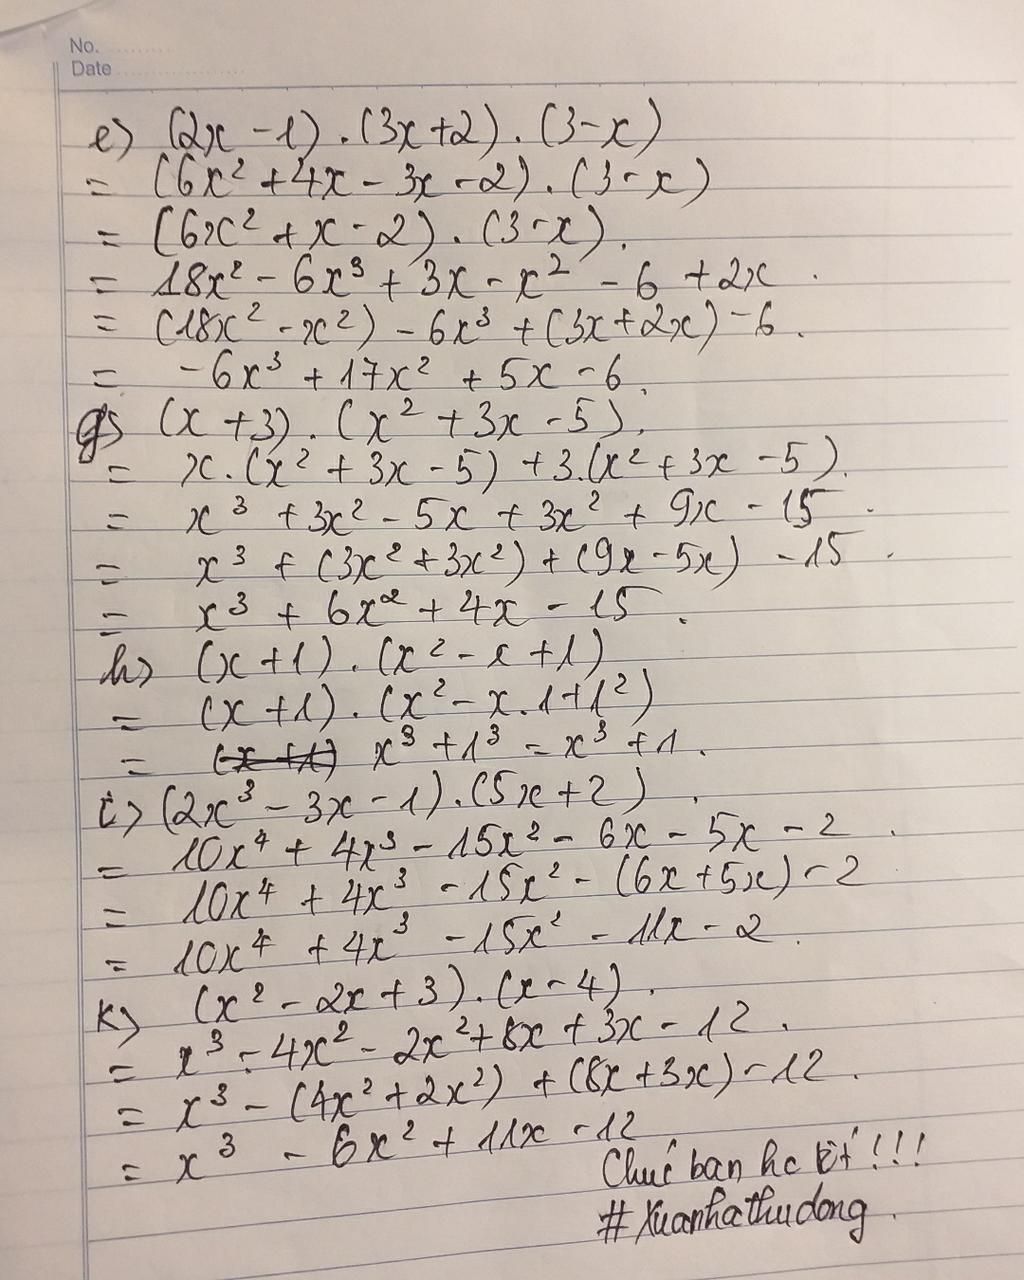 No. ............
Date ......................
e) (2x - 1) . (3x + 2) . (3 - x)
= (6x² + 4x - 3x - 2) . (3 - x)
= (6x² + x - 2) . (3 - x).
= 18x² - 6x³ + 3x - x² - 6 + 2x .
= (18x² - x²) - 6x³ + (3x + 2x) - 6.
= -6x³ + 17x² + 5x - 6.
g) (x + 3) . (x² + 3x - 5).
= x.(x² + 3x - 5) + 3.(x² + 3x - 5).
= x³ + 3x² - 5x + 3x² + 9x - 15 .
= x³ + (3x² + 3x²) + (9x - 5x) - 15 .
= x³ + 6x² + 4x - 15 .
h) (x + 1) . (x² - x + 1)
= (x + 1) . (x² - x.1 + 1²)
= (x + 1) x³ + 1³ = x³ + 1 .
i) (2x³ - 3x - 1).(5x + 2) .
= 10x⁴ + 4x³ - 15x² - 6x - 5x - 2 .
= 10x⁴ + 4x³ - 15x² - (6x + 5x) - 2
= 10x⁴ + 4x³ - 15x² - 11x - 2 .
k) (x² - 2x + 3) . (x - 4) .
= x³ - 4x² - 2x² + 8x + 3x - 12 .
= x³ - (4x² + 2x²) + (8x + 3x) - 12 .
= x³ - 6x² + 11x - 12
Chúc bạn hc tốt !!!
#Xuanhathudong .